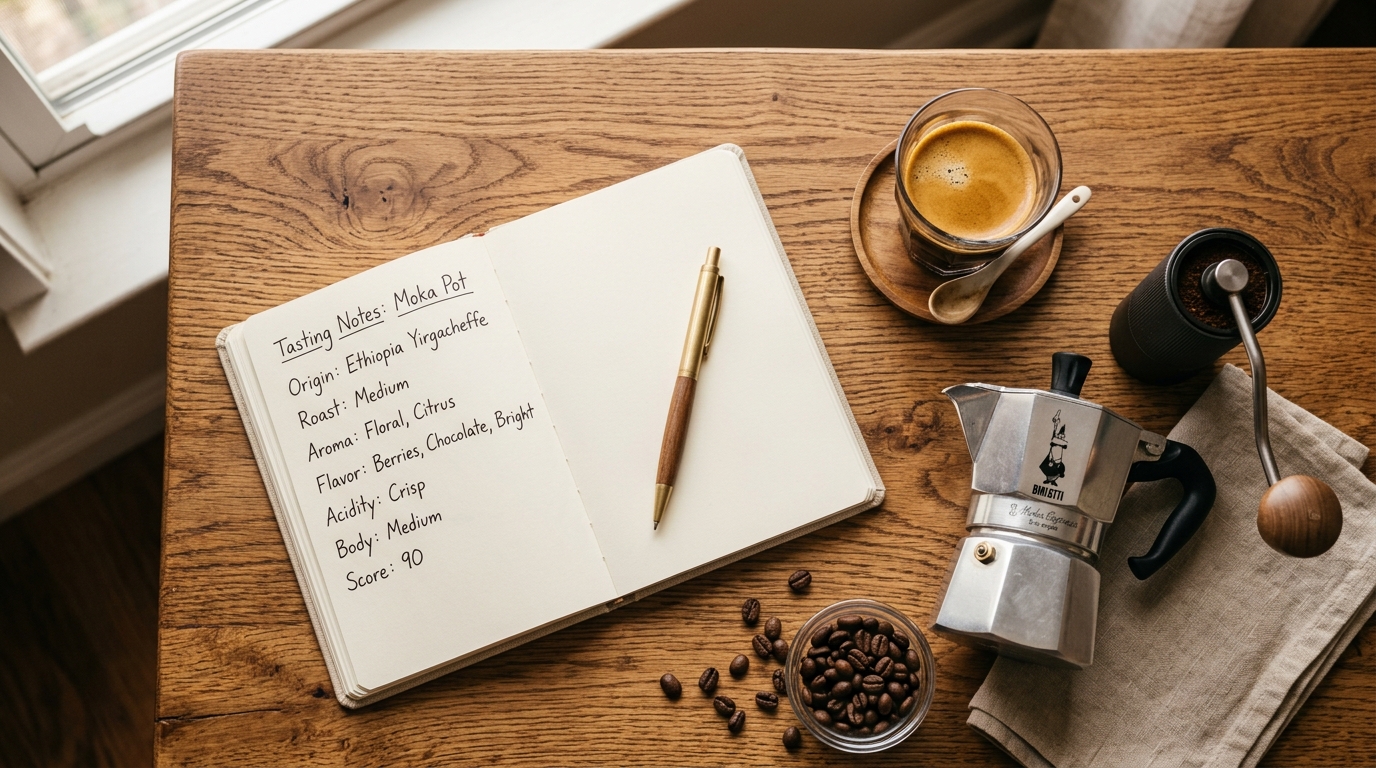 Tasting Notes: Moka Pot
Origin: Ethiopia Yirgacheffe
Roast: Medium
Aroma: Floral, Citrus
Flavor: Berries, Chocolate, Bright
Acidity: Crisp
Body: Medium
Score: 90